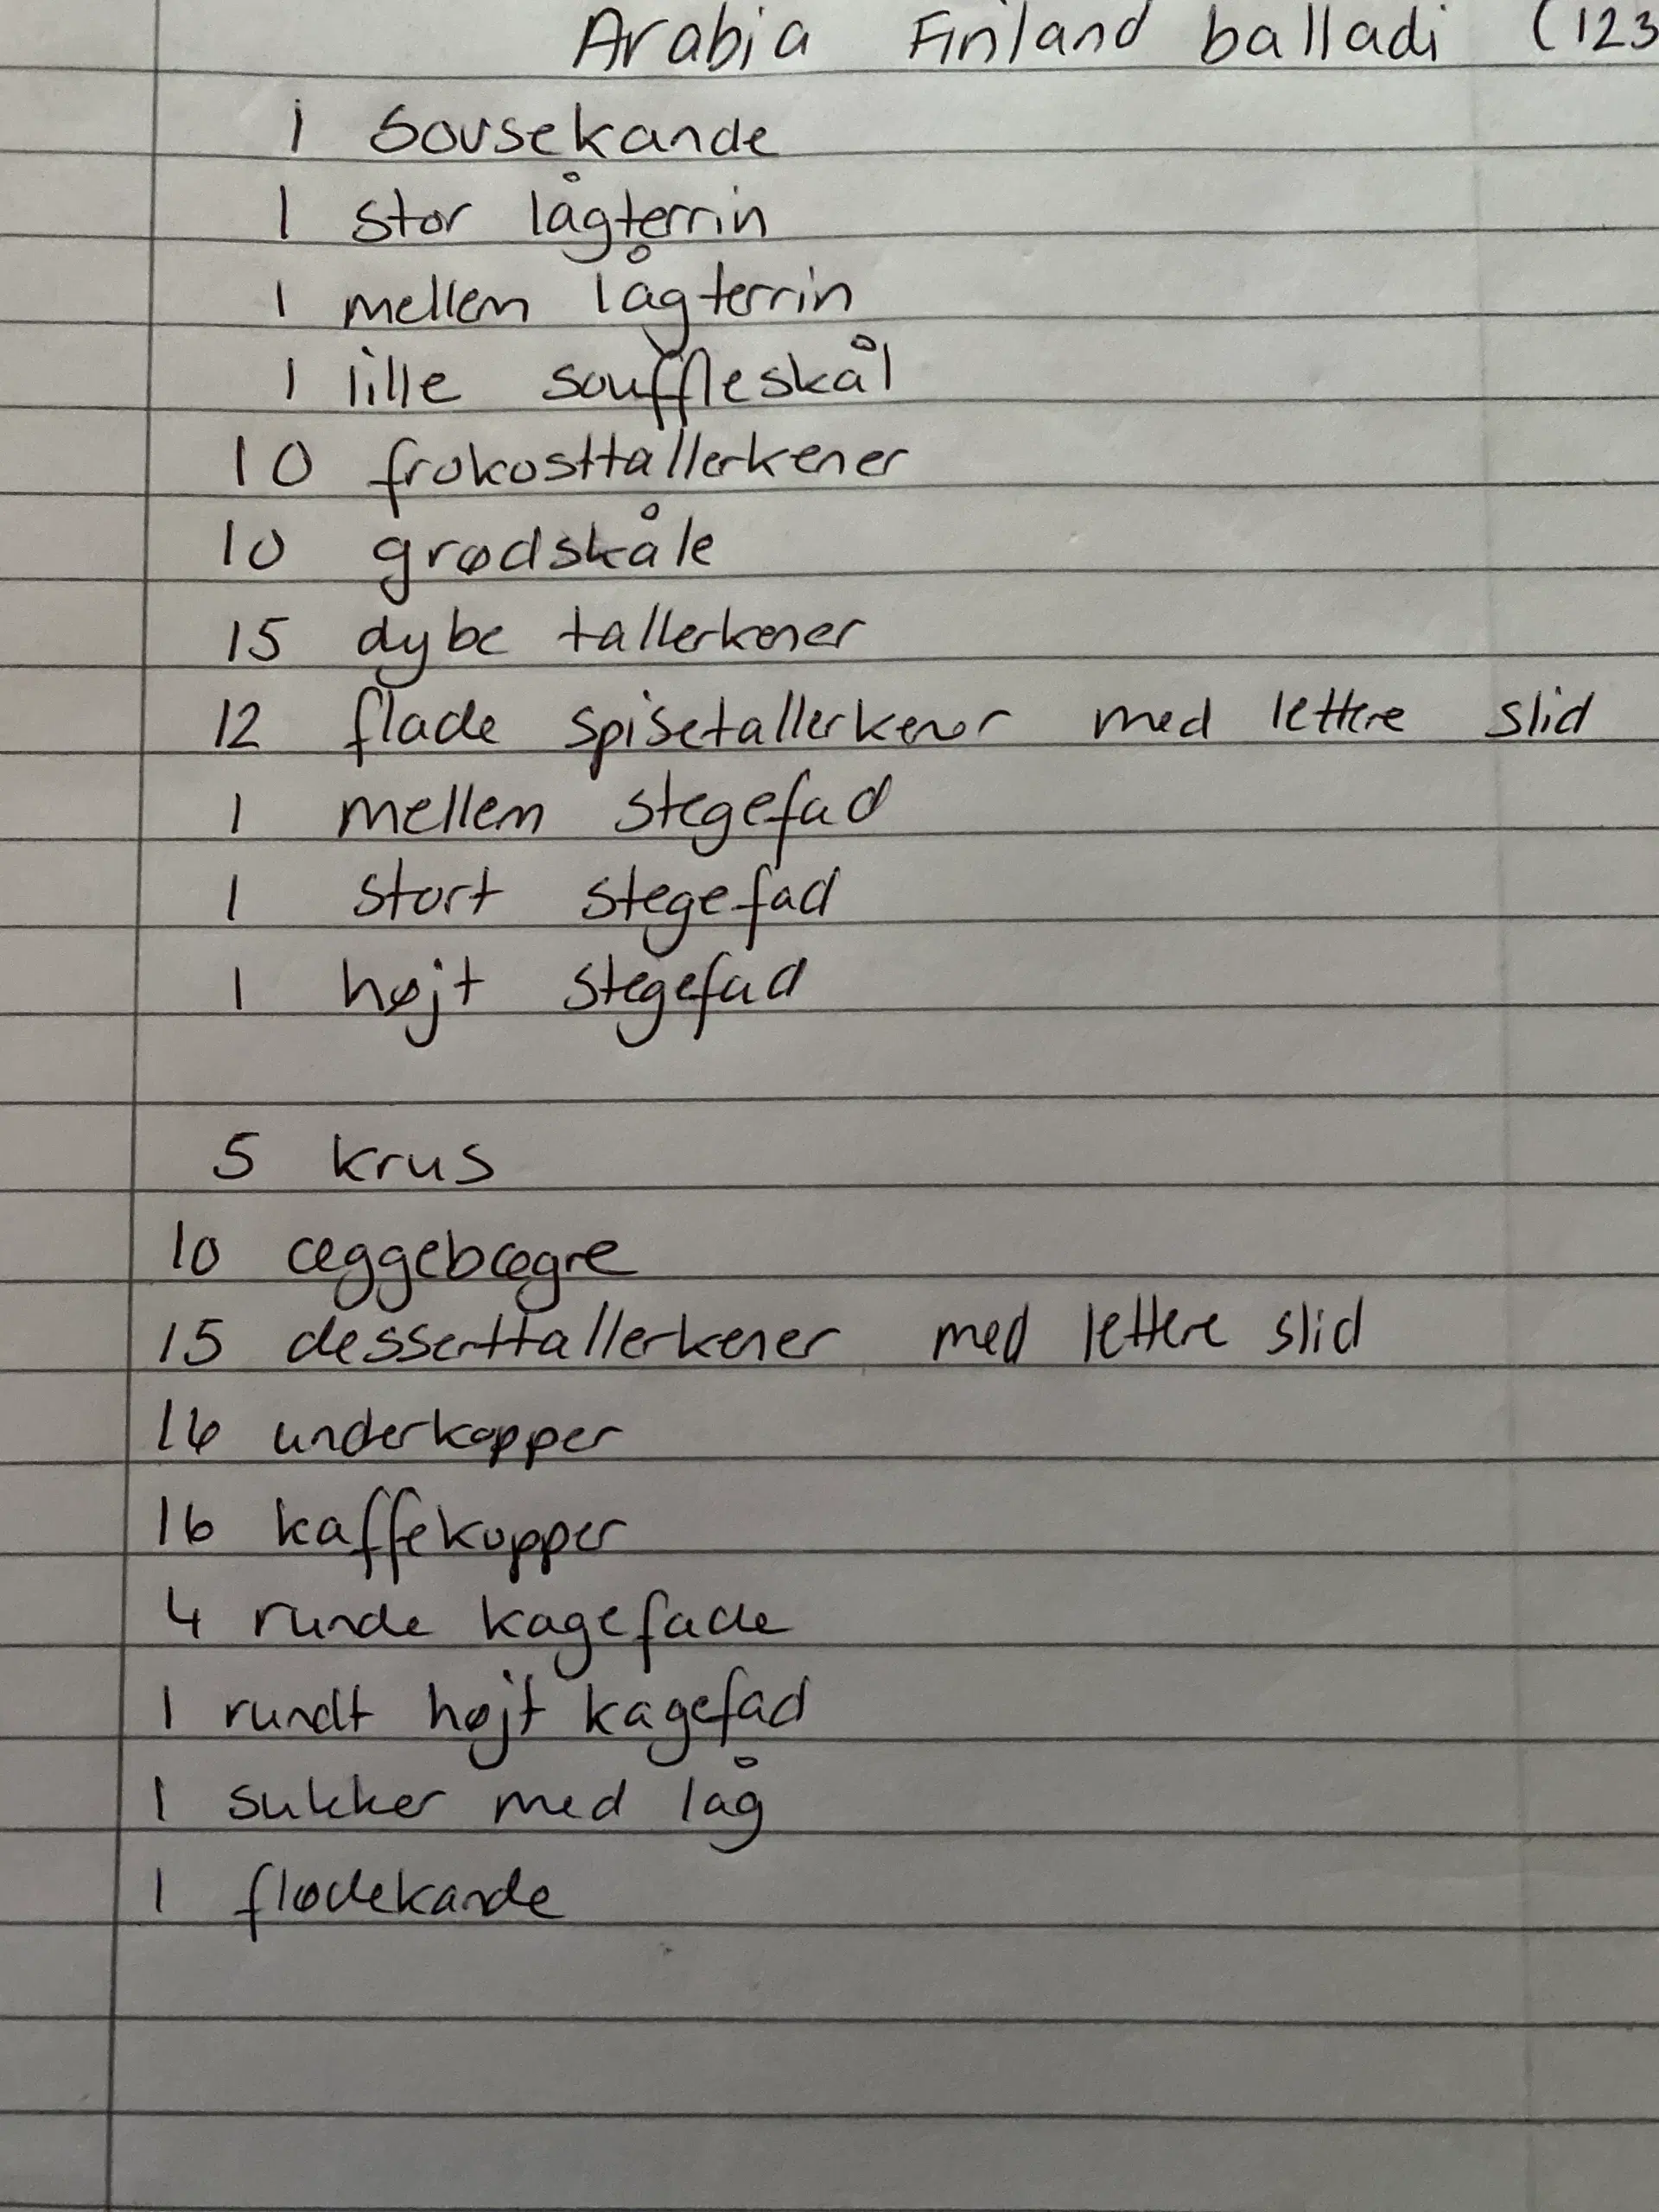 Arabia Finland balladi (123
1 Sovsekande
1 stor lågterrin
1 mellem lågterrin
1 lille souffleskål
10 frokosttallerkener
10 grødskåle
15 dybe tallerkener
12 flade spisetallerkener med lettere slid
1 mellem stegefad
1 stort stegefad
1 højt stegefad
5 krus
10 æggebægre
15 desserttallerkener med lettere slid
16 underkopper
16 kaffekopper
4 runde kagefade
1 rundt højt kagefad
1 sukker med låg
1 flødekande